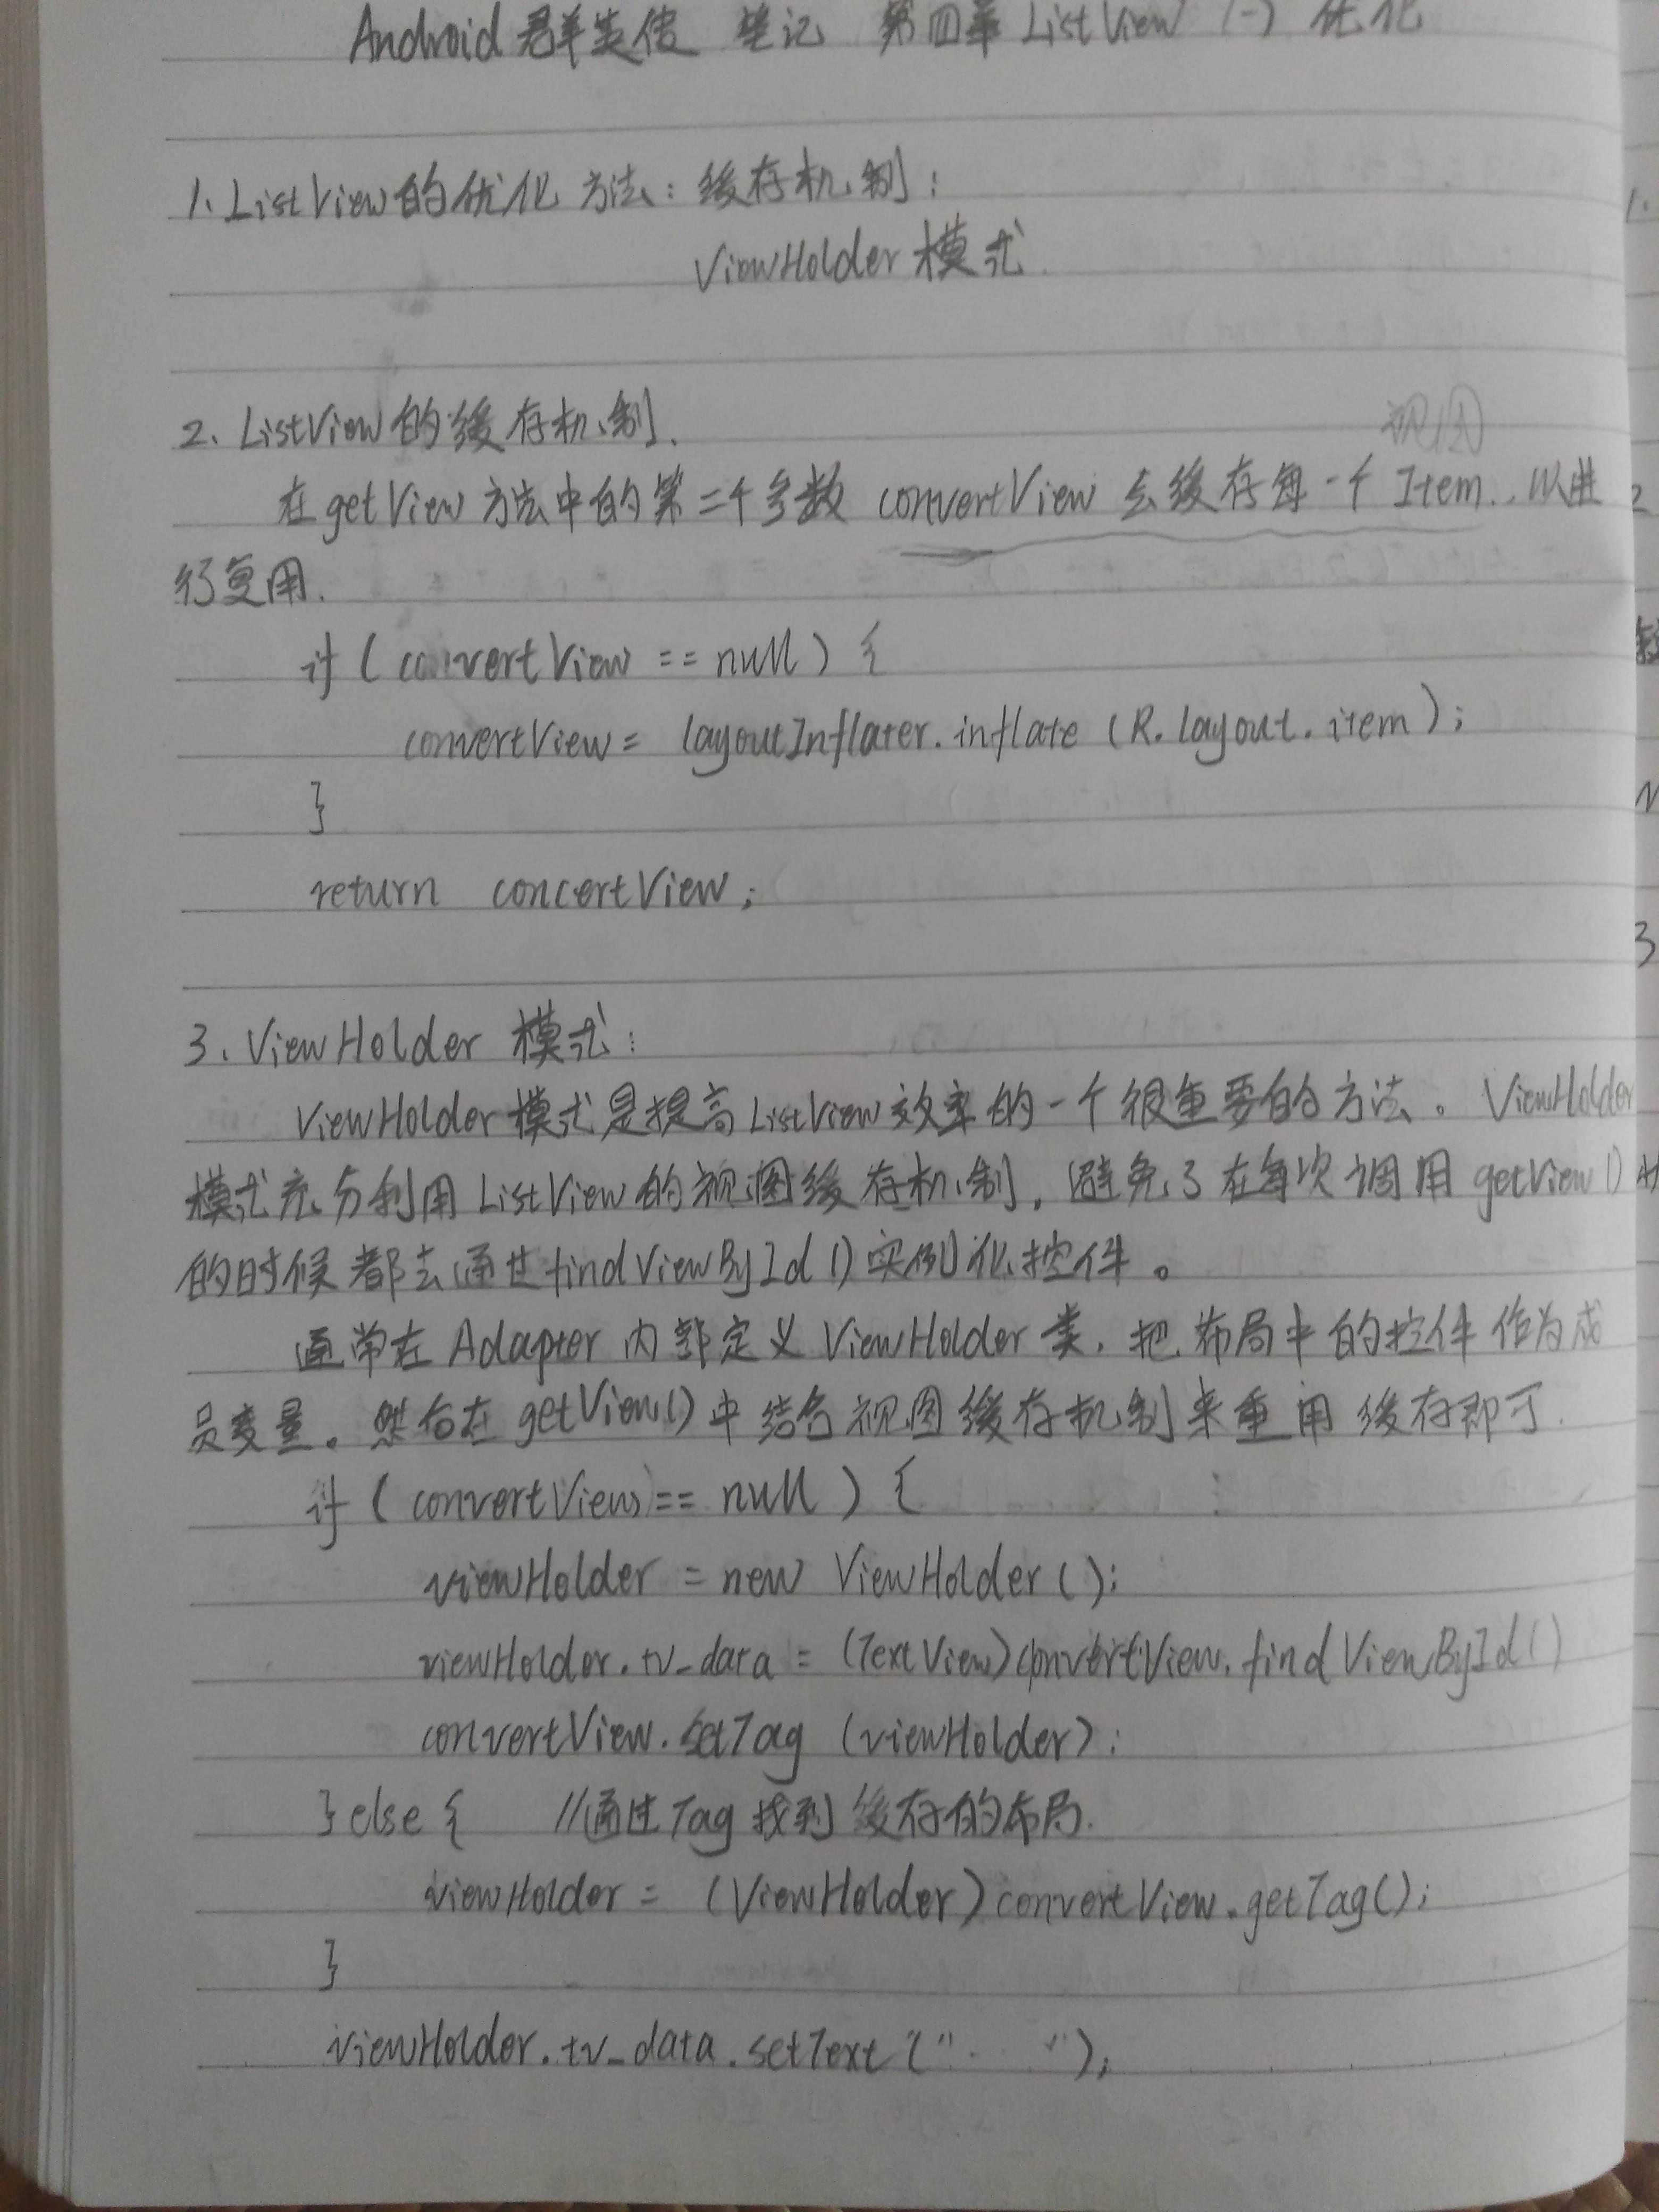 Android 群英传 笔记 第四章 ListView (一) 优化
1. ListView的优化方法: 缓存机制:
ViewHolder 模式.
2. ListView 的缓存机制.
视图
在 getView 方法中的第二个参数 convertView 去缓存每一个 Item.. 以进
行复用.
if ( convertView == null ) {
convertView = layoutInflater.inflate (R.layout.item);
}
return concertView;
3. ViewHolder 模式:
ViewHolder 模式是提高ListView效率的一个很重要的方法。ViewHolder
模式充分利用 ListView 的视图缓存机制, 避免了在每次调用 getView()时
的时候都去通过findViewById()实例化控件。
通常在 Adapter 内部定义 ViewHolder 类, 把布局中的控件作为成
员变量。然后在 getView()中结合视图缓存机制来重用缓存即可.
if ( convertView == null ) {
viewHolder = new ViewHolder();
viewHolder.tv_data = (TextView)convertView.findViewById()
convertView.setTag (viewHolder);
} else { //通过Tag 找到缓存的布局.
viewHolder = (ViewHolder)convertView.getTag();
}
viewHolder.tv_data.setText(" ");